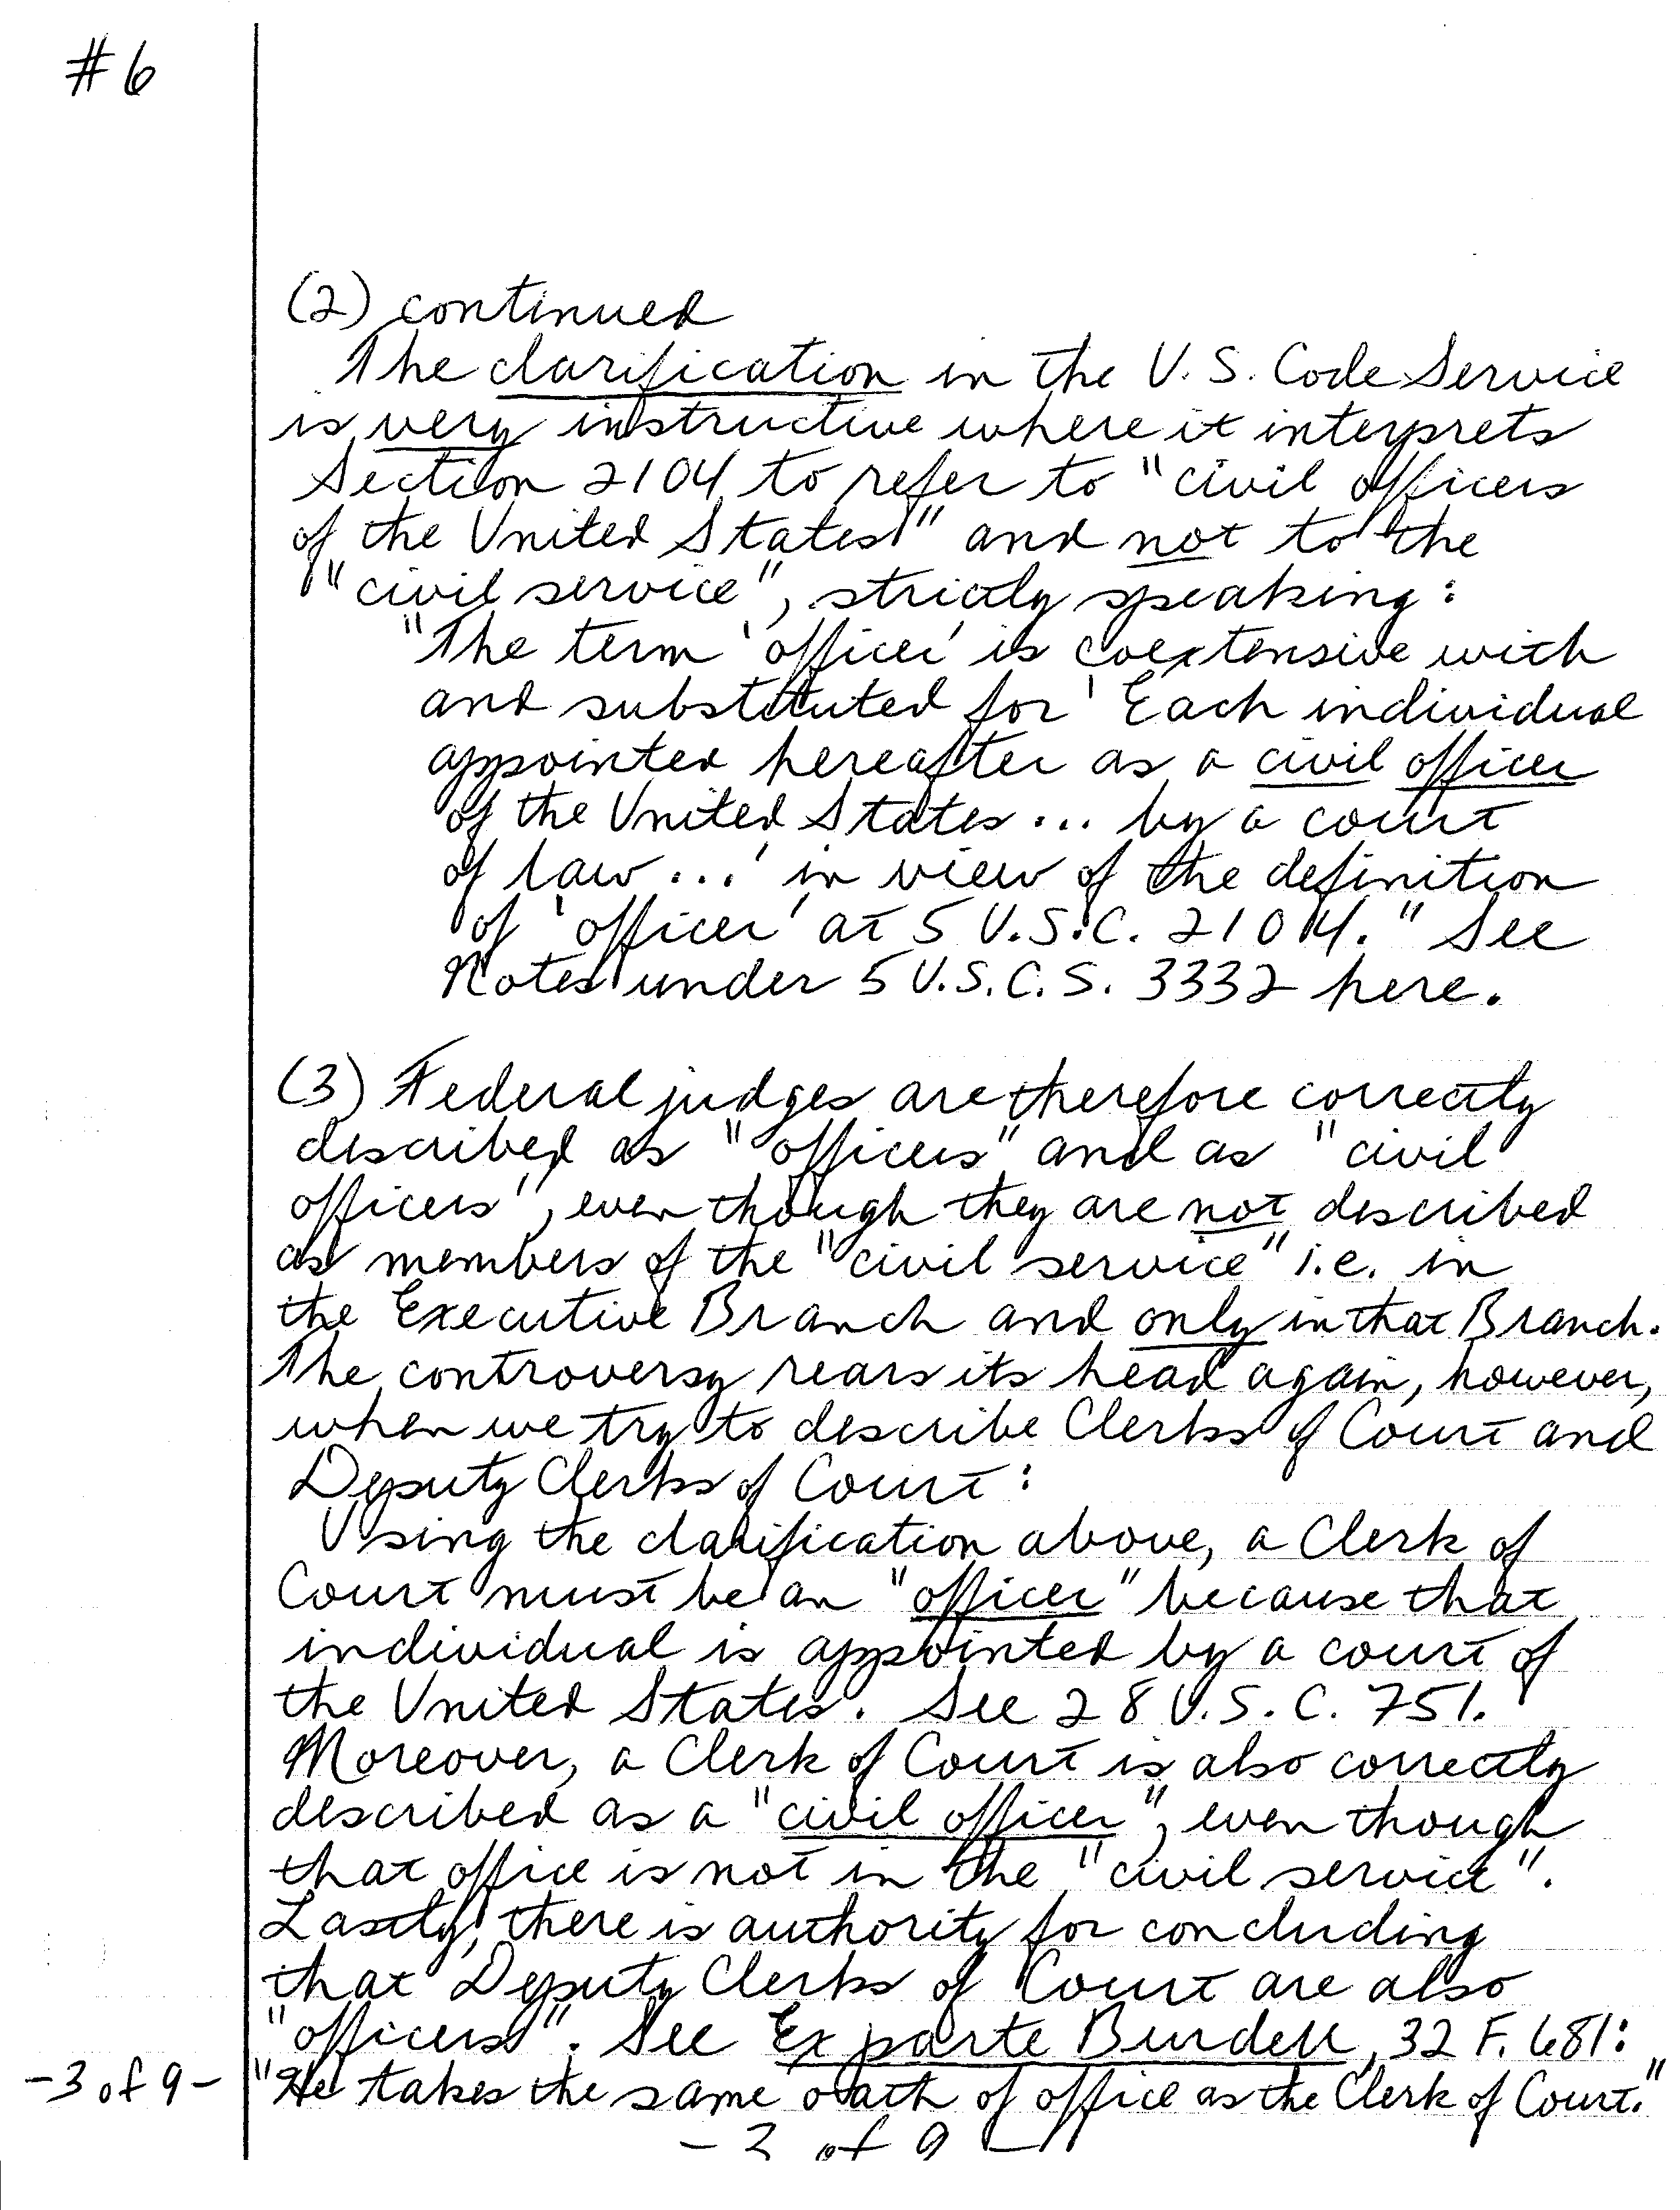 #6
(2) continued
The clarification in the U.S. Code Service
is very instructive where it interprets
Section 2104 to refer to "civil officers
of the United States" and not to the
"civil service", strictly speaking:
"The term 'officer' is coextensive with
and substituted for 'Each individual
appointed hereafter as a civil officer
of the United States ... by a court
of law ...' in view of the definition
of 'officer' at 5 U.S.C. 2104." See
Notes under 5 U.S.C.S. 3332 here.
(3) Federal judges are therefore correctly
described as "officers" and as "civil
officers", even though they are not described
as members of the "civil service" i.e. in
the Executive Branch and only in that Branch.
The controversy rears its head again, however,
when we try to describe Clerks of Court and
Deputy Clerks of Court:
Using the clarification above, a Clerk of
Court must be an "officer" because that
individual is appointed by a court of
the United States. See 28 U.S.C. 751.
Moreover, a Clerk of Court is also correctly
described as a "civil officer", even though
that office is not in the "civil service".
Lastly, there is authority for concluding
that Deputy Clerks of Court are also
"officers". See Ex parte Burdell, 32 F. 681:
-3 of 9- "He takes the same oath of office as the Clerk of Court."
- 3 of 9 -